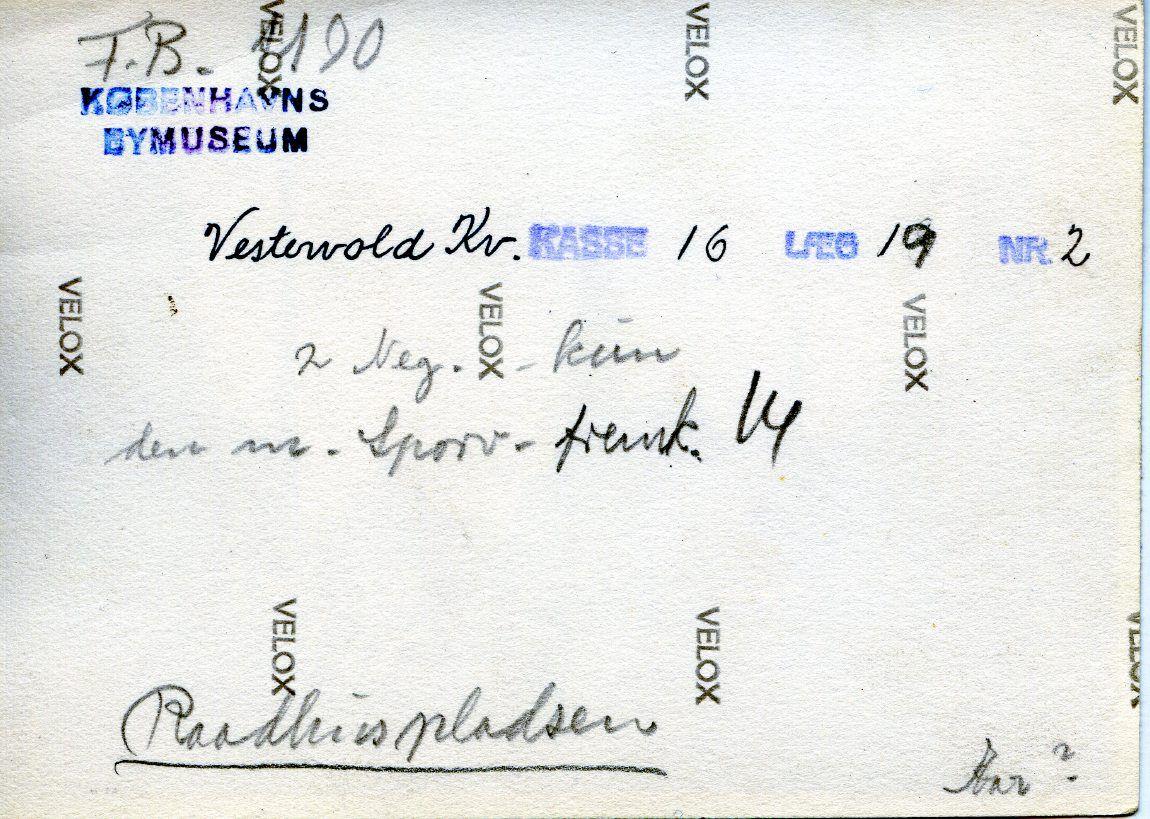 F.B. 190
KØBENHAVNS
BYMUSEUM
Vestervold Kv. KASSE 16 LÆG 19 NR. 2
2 Neg. - kun
den m. Sporv- fremk.
Raadhuspladsen
Aar?
VELOX
VELOX
VELOX
VELOX
VELOX
VELOX
VELOX
VELOX
VELOX